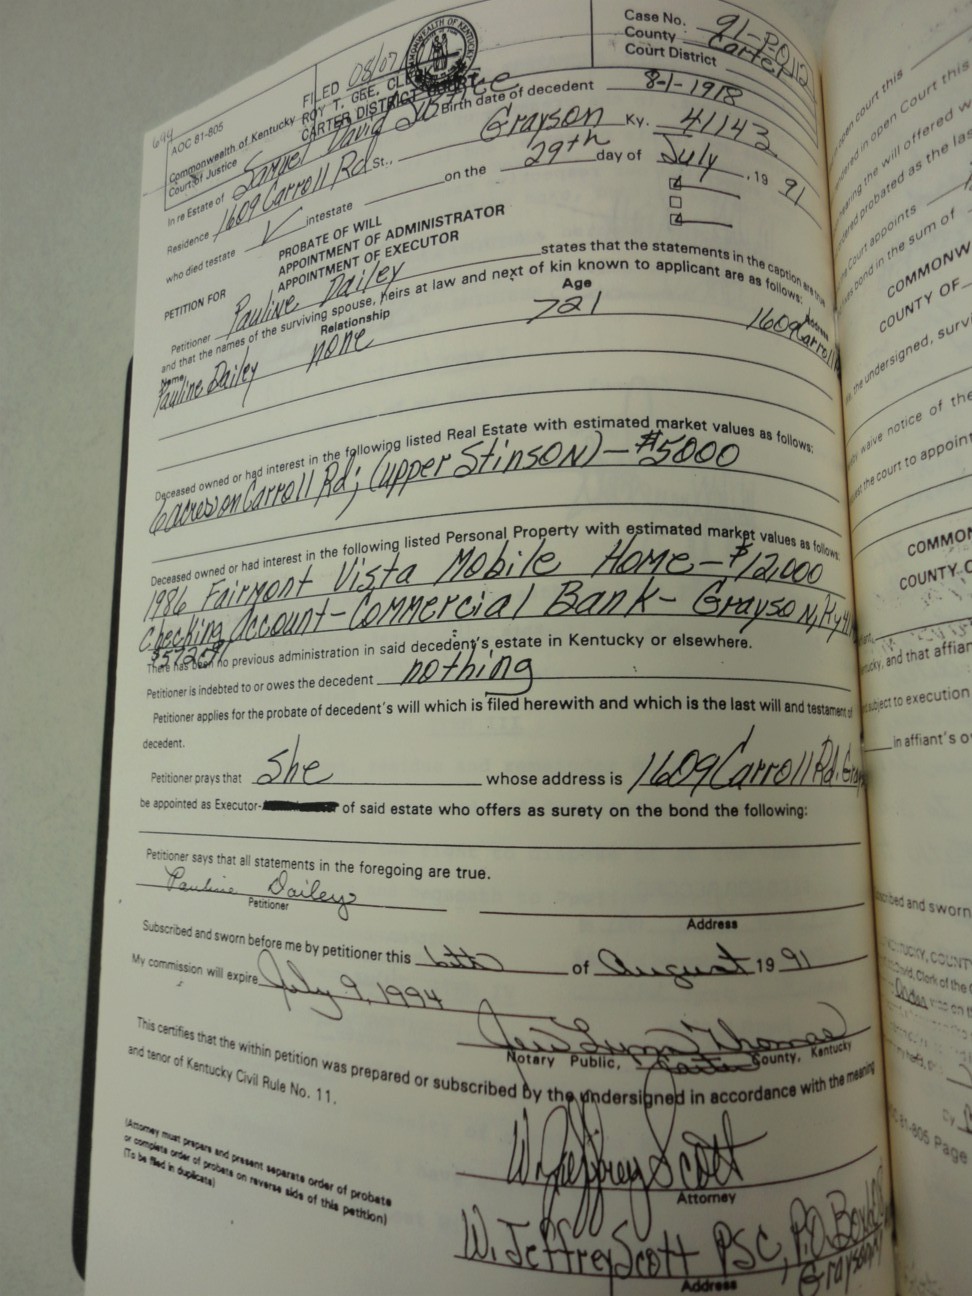 644
AOC 81-805
Commonwealth of Kentucky
Court of Justice
FILED 08/07
ROY T. GEE, CLERK
CARTER DISTRICT COURT
Case No. 91-P-0112
County Carter
Court District
In re Estate of Samuel David Justice Birth date of decedent 8-1-1918
Residence 1609 Carroll Rd St., Grayson Ky. 41143
who died testate √ intestate on the 29th day of July, 19 91
PETITION FOR
PROBATE OF WILL
APPOINTMENT OF ADMINISTRATOR
APPOINTMENT OF EXECUTOR
Petitioner Pauline Dailey states that the statements in the caption are true
and that the names of the surviving spouse, heirs at law and next of kin known to applicant are as follows:
Name Relationship Age Address
Pauline Dailey none 721 1609 Carroll
Deceased owned or had interest in the following listed Real Estate with estimated market values as follows:
6 acres on Carroll Rd; (upper Stinson) - $5000
Deceased owned or had interest in the following listed Personal Property with estimated market values as follows:
1986 Fairmont Vista Mobile Home - $12,000
Checking Account - Commercial Bank - Grayson, Ky
There has been no previous administration in said decedent's estate in Kentucky or elsewhere.
Petitioner is indebted to or owes the decedent nothing
Petitioner applies for the probate of decedent's will which is filed herewith and which is the last will and testament of
decedent.
Petitioner prays that She whose address is 1609 Carroll Rd.
be appointed as Executor- of said estate who offers as surety on the bond the following:
Petitioner says that all statements in the foregoing are true.
Pauline Dailey
Petitioner
Address
Subscribed and sworn before me by petitioner this 6th of August 19 91
My commission will expire July 9, 1994
Thomas
Notary Public, Carter County, Kentucky
This certifies that the within petition was prepared or subscribed by the undersigned in accordance with the meaning
and tenor of Kentucky Civil Rule No. 11.
W. Jeffrey Scott
Attorney
(Attorney must prepare and present separate order of probate
or complete order of probate on reverse side of this petition)
(To be filed in duplicate)
W. Jeffrey Scott PSC, P.O. Box
Grayson
Address
open court this
in open Court this
the will offered
probated as the las
Court appoints
bond in the sum of
COMMONW
COUNTY OF
the undersigned, survi
waive notice of the
the court to appoint
COMMON
COUNTY O
and that affian
subject to execution
in affiant's o
and sworn
81-805 Page